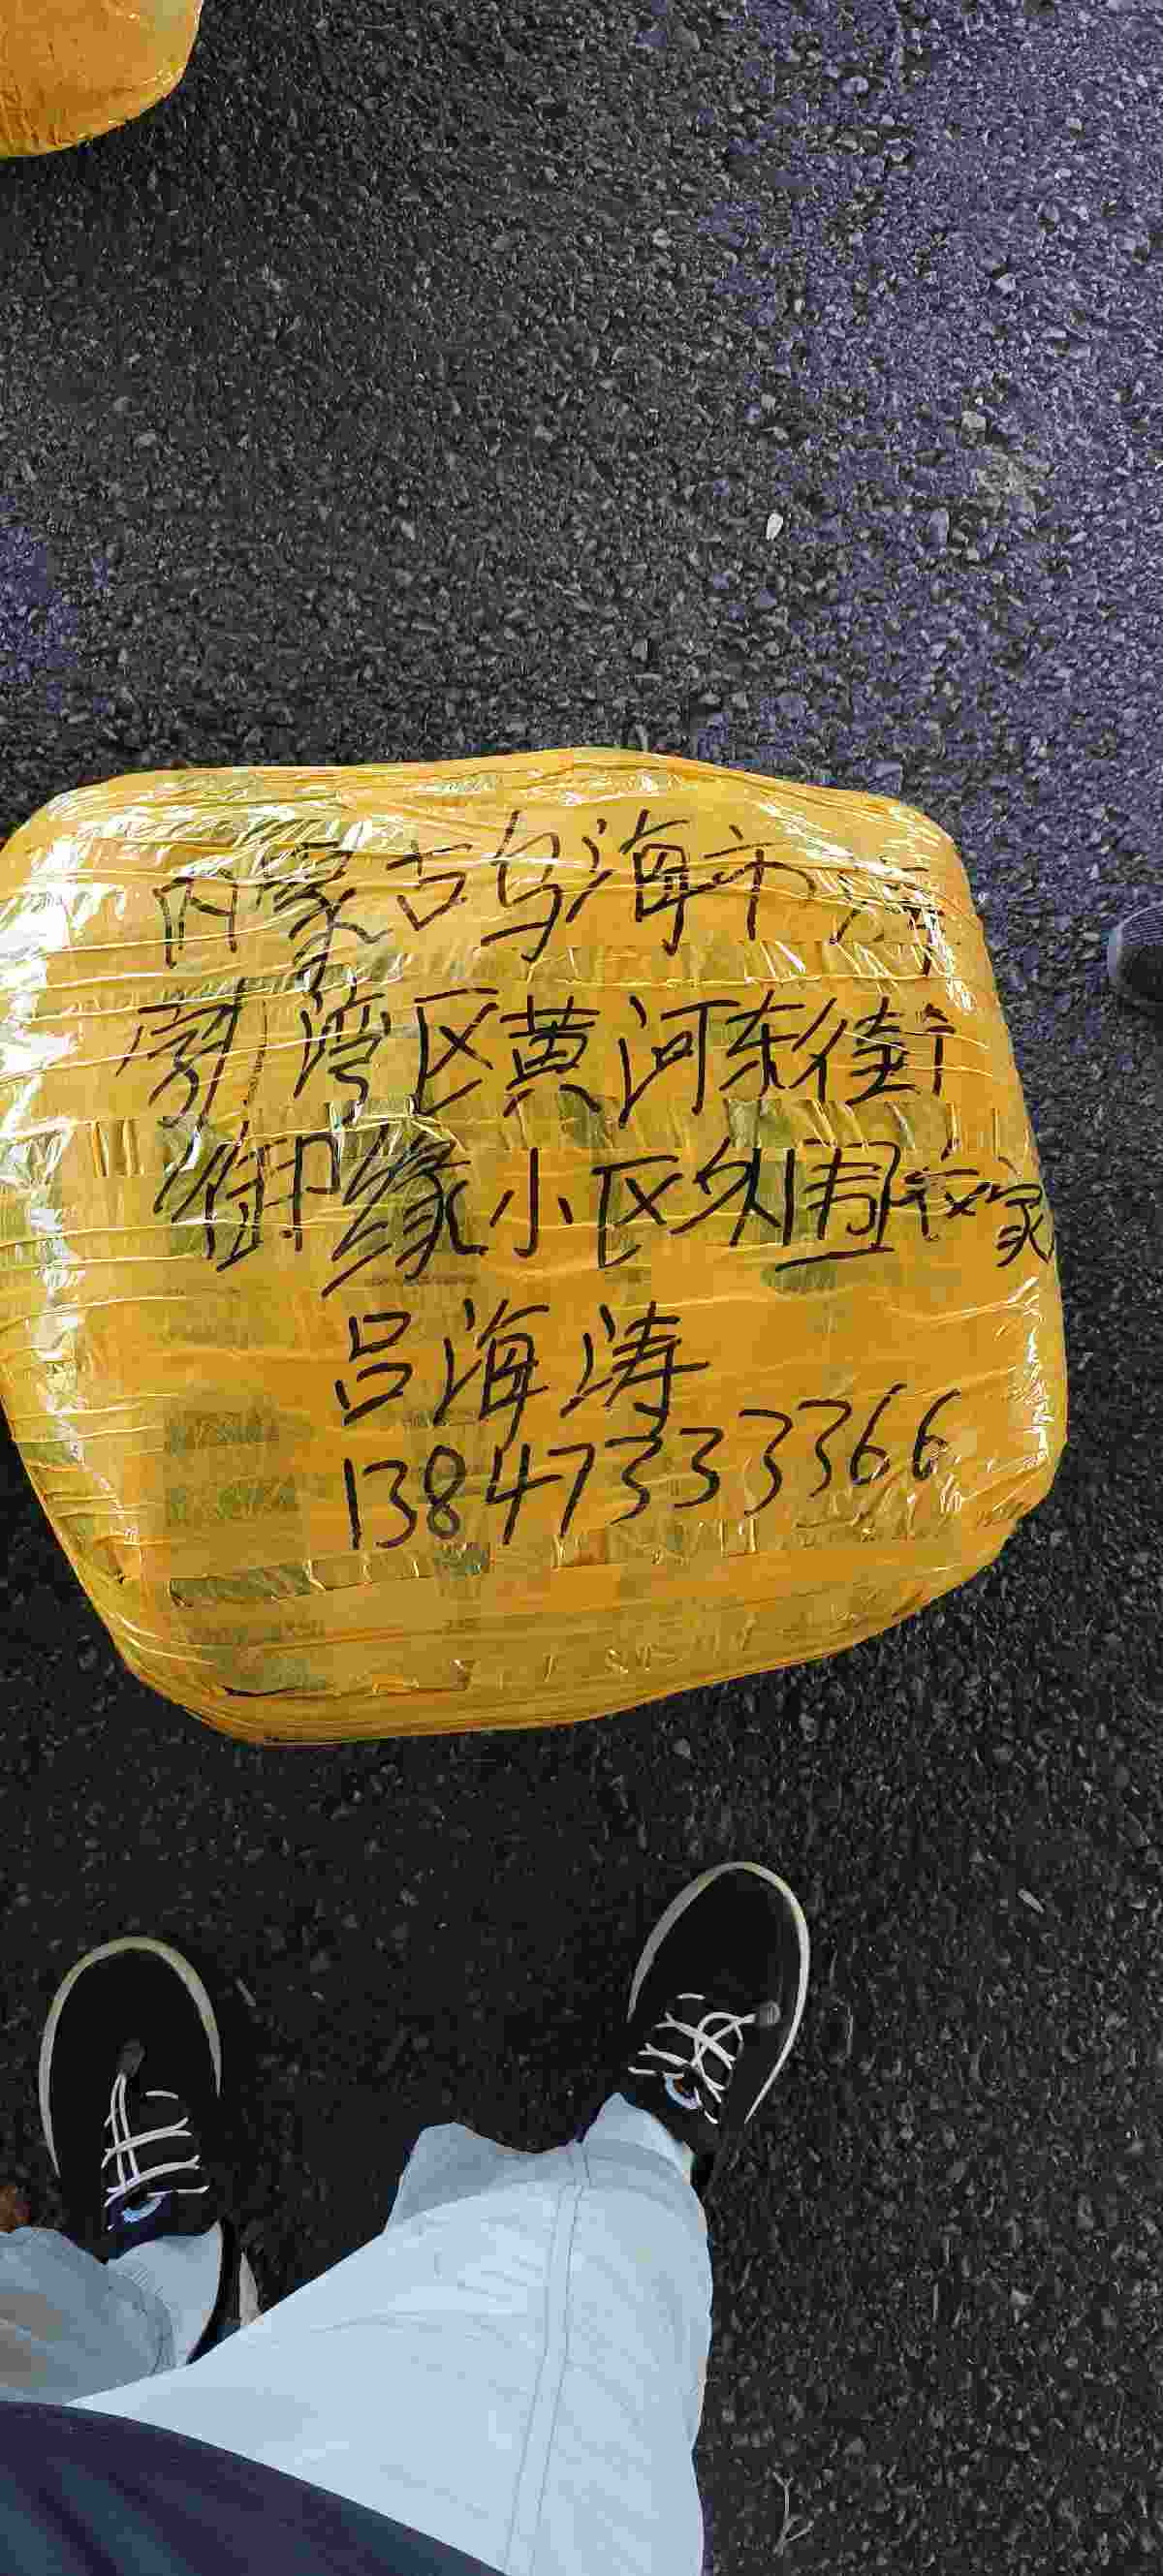 内蒙古乌海市海
勃湾区黄河东街
御缘小区外围衣家
吕海涛
13847333366